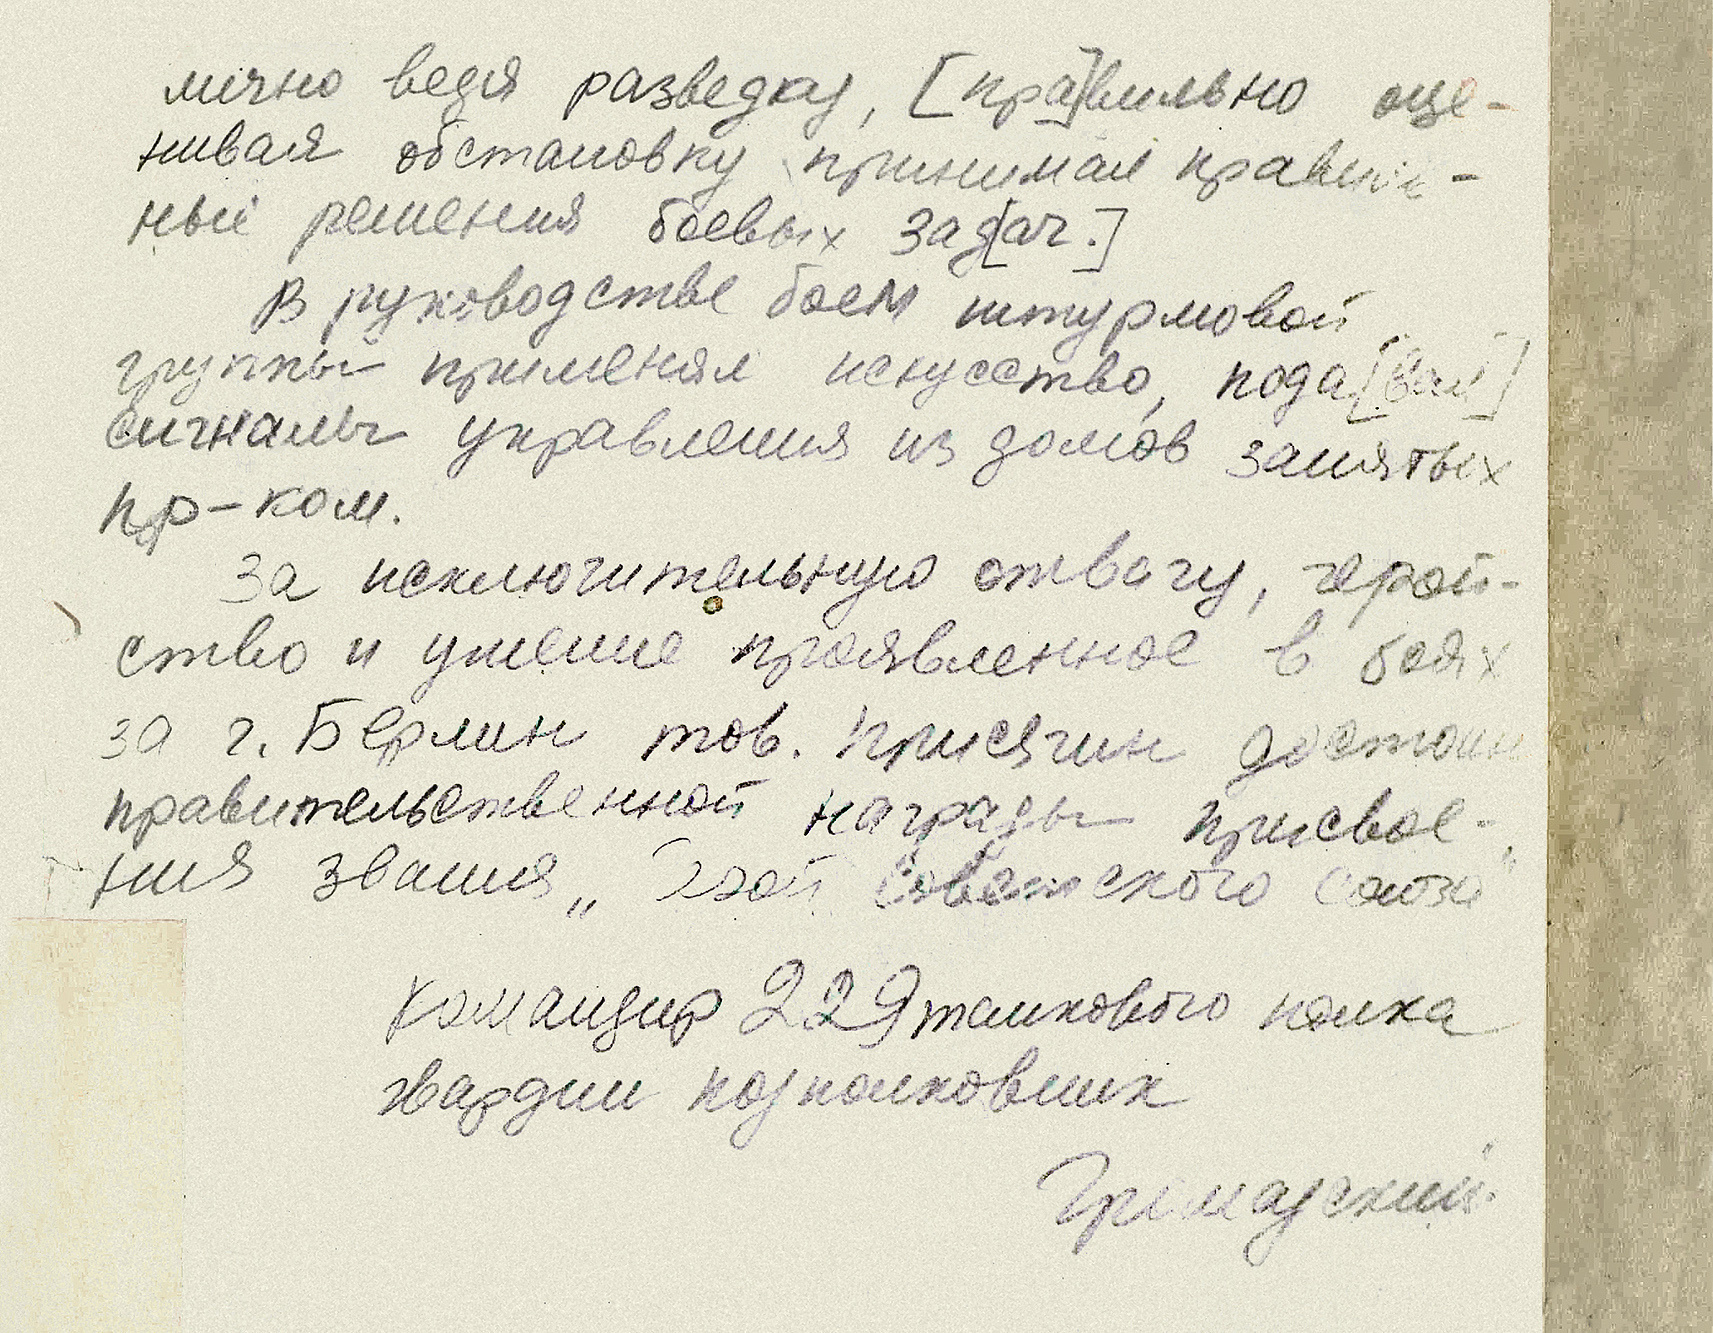 лично ведя разведку, [пра]вильно оце-
нивая обстановку принимал правиль-
ные решения боевых зад[ач.]
В руководстве боем штурмовой
группы применял искусство, пода[вал]
сигналы управления из домов занятых
пр-ком.
За исключительную отвагу, герой-
ство и умение проявленное в боях
за г. Берлин тов. Присягин достоин
правительственной награды присвое-
ния звания „Герой Советского Союза"
Командир 229 танкового полка
гвардии подполковник
Громадский.